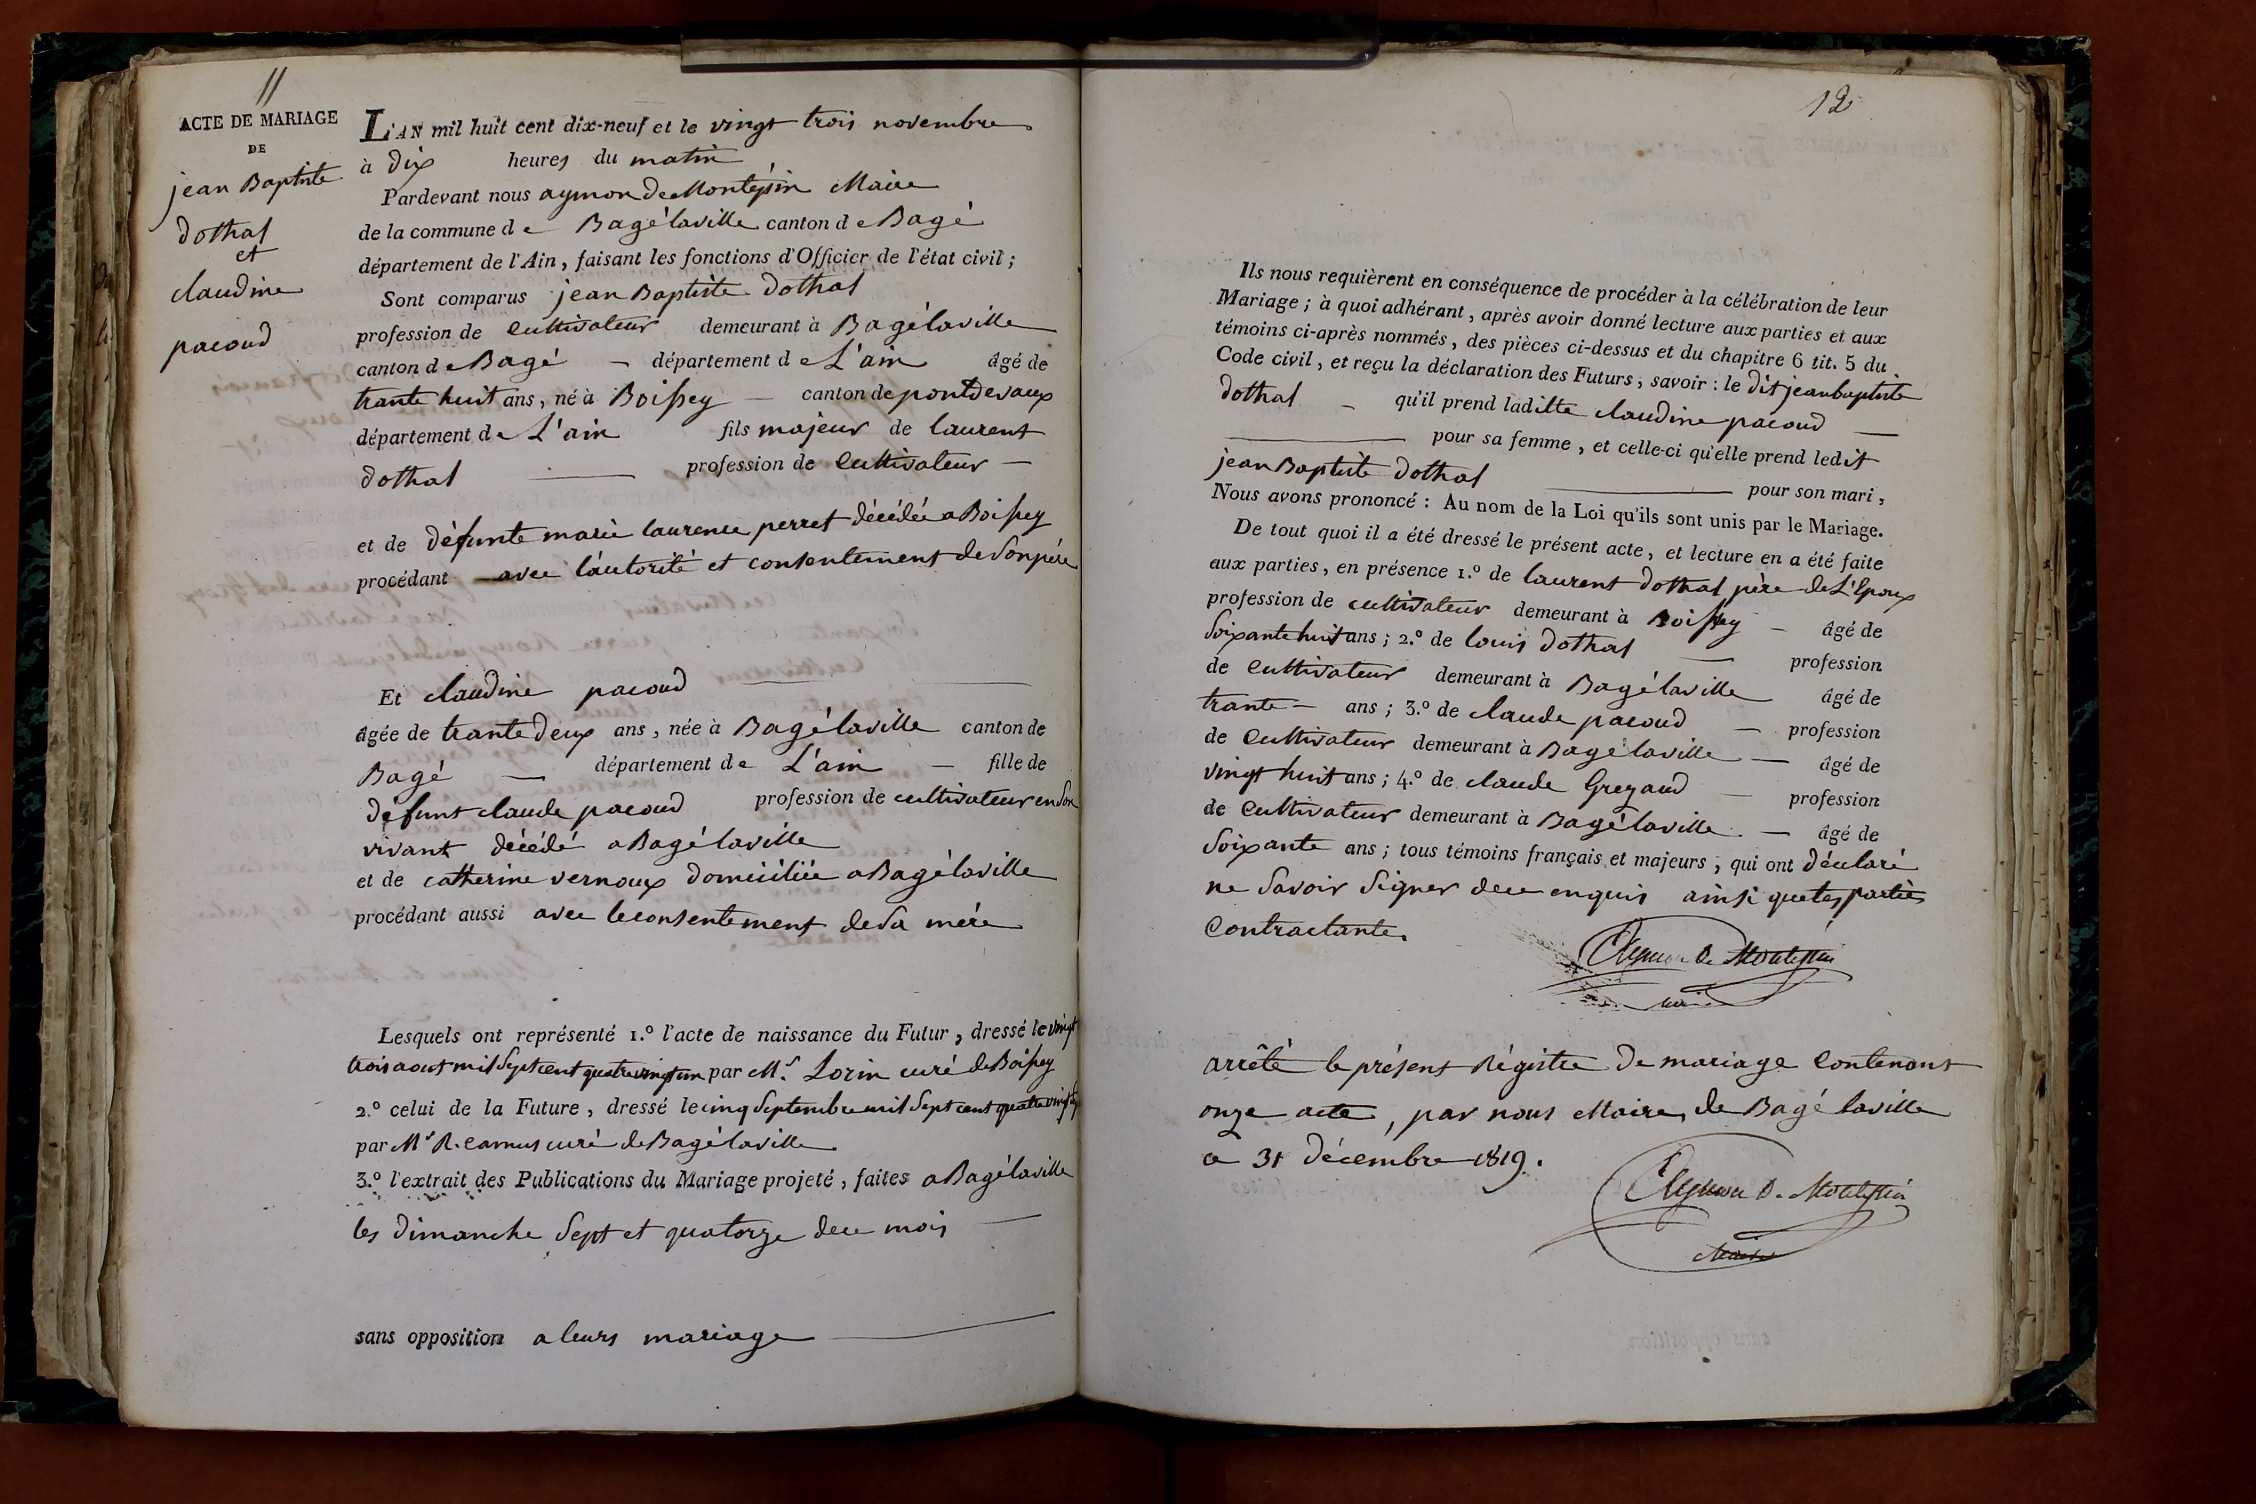 11
ACTE DE MARIAGE
DE
jean Baptiste
dothal
et
claudine
pacoud
L'AN mil huit cent dix-neuf et le vingt trois novembre
à dix heures du matin
Pardevant nous aymon de Montépin Maire
de la commune de Bagé laville canton de Bagé
département de l'Ain, faisant les fonctions d'Officier de l'état civil ;
Sont comparus jean Baptiste dothal
profession de cultivateur demeurant à Bagé laville
canton de Bagé — département de L'ain âgé de
trante huit ans, né à Boissey — canton de pontdevaux
département de L'ain fils majeur de laurent
dothal — profession de cultivateur —
et de défunte marie laurence perret décédée a Boissey
procédant avec l'autorité et consentement de Son père
Et claudine pacoud —
âgée de trante deux ans, née à Bagé laville canton de
Bagé — département de L'ain — fille de
défunt claude pacoud profession de cultivateur en Son
vivant décédé a Bagé laville
et de catherine vernoux domiciliée a Bagé laville
procédant aussi avec le consentement de Sa mère
Lesquels ont représenté 1.º l'acte de naissance du Futur, dressé le vingt
trois aout mil Sept cent quatre vingt un par Mr. Lorin curé de Boissey
2.º celui de la Future, dressé le cinq Septembre mil Sept cent quatre vingt
par Mr R. camus curé de Bagé laville
3.º l'extrait des Publications du Mariage projeté, faites a Bagé laville
les dimanche Sept et quatorze de ce mois —
sans opposition a leurs mariage —
12
Ils nous requièrent en conséquence de procéder à la célébration de leur
Mariage ; à quoi adhérant, après avoir donné lecture aux parties et aux
témoins ci-après nommés, des pièces ci-dessus et du chapitre 6 tit. 5 du
Code civil, et reçu la déclaration des Futurs, savoir : le dit jean baptiste
dothal — qu'il prend laditte claudine pacoud —
— pour sa femme, et celle-ci qu'elle prend ledit
jean Baptiste dothal — pour son mari,
Nous avons prononcé : Au nom de la Loi qu'ils sont unis par le Mariage.
De tout quoi il a été dressé le présent acte, et lecture en a été faite
aux parties, en présence 1.º de laurent dothal père de L'Epoux
profession de cultivateur demeurant à Boissey — âgé de
Soixante huit ans ; 2.º de louis dothal — profession
de cultivateur demeurant à Bagé laville âgé de
trante — ans ; 3.º de claude pacoud — profession
de cultivateur demeurant à Bagé laville — âgé de
vingt huit ans ; 4.º de claude Gregaud — profession
de cultivateur demeurant à Bagé laville — âgé de
Soixante ans ; tous témoins français et majeurs, qui ont déclaré
ne Savoir Signer de ce enquis ainsi que les parties
Contractante.
Aymon De Montépin
maire
arrêté le présent Régistre de mariage Contenant
onze acte, par nous Maire, de Bagé laville
ce 31 décembre 1819.
Aymon De Montépin
Maire